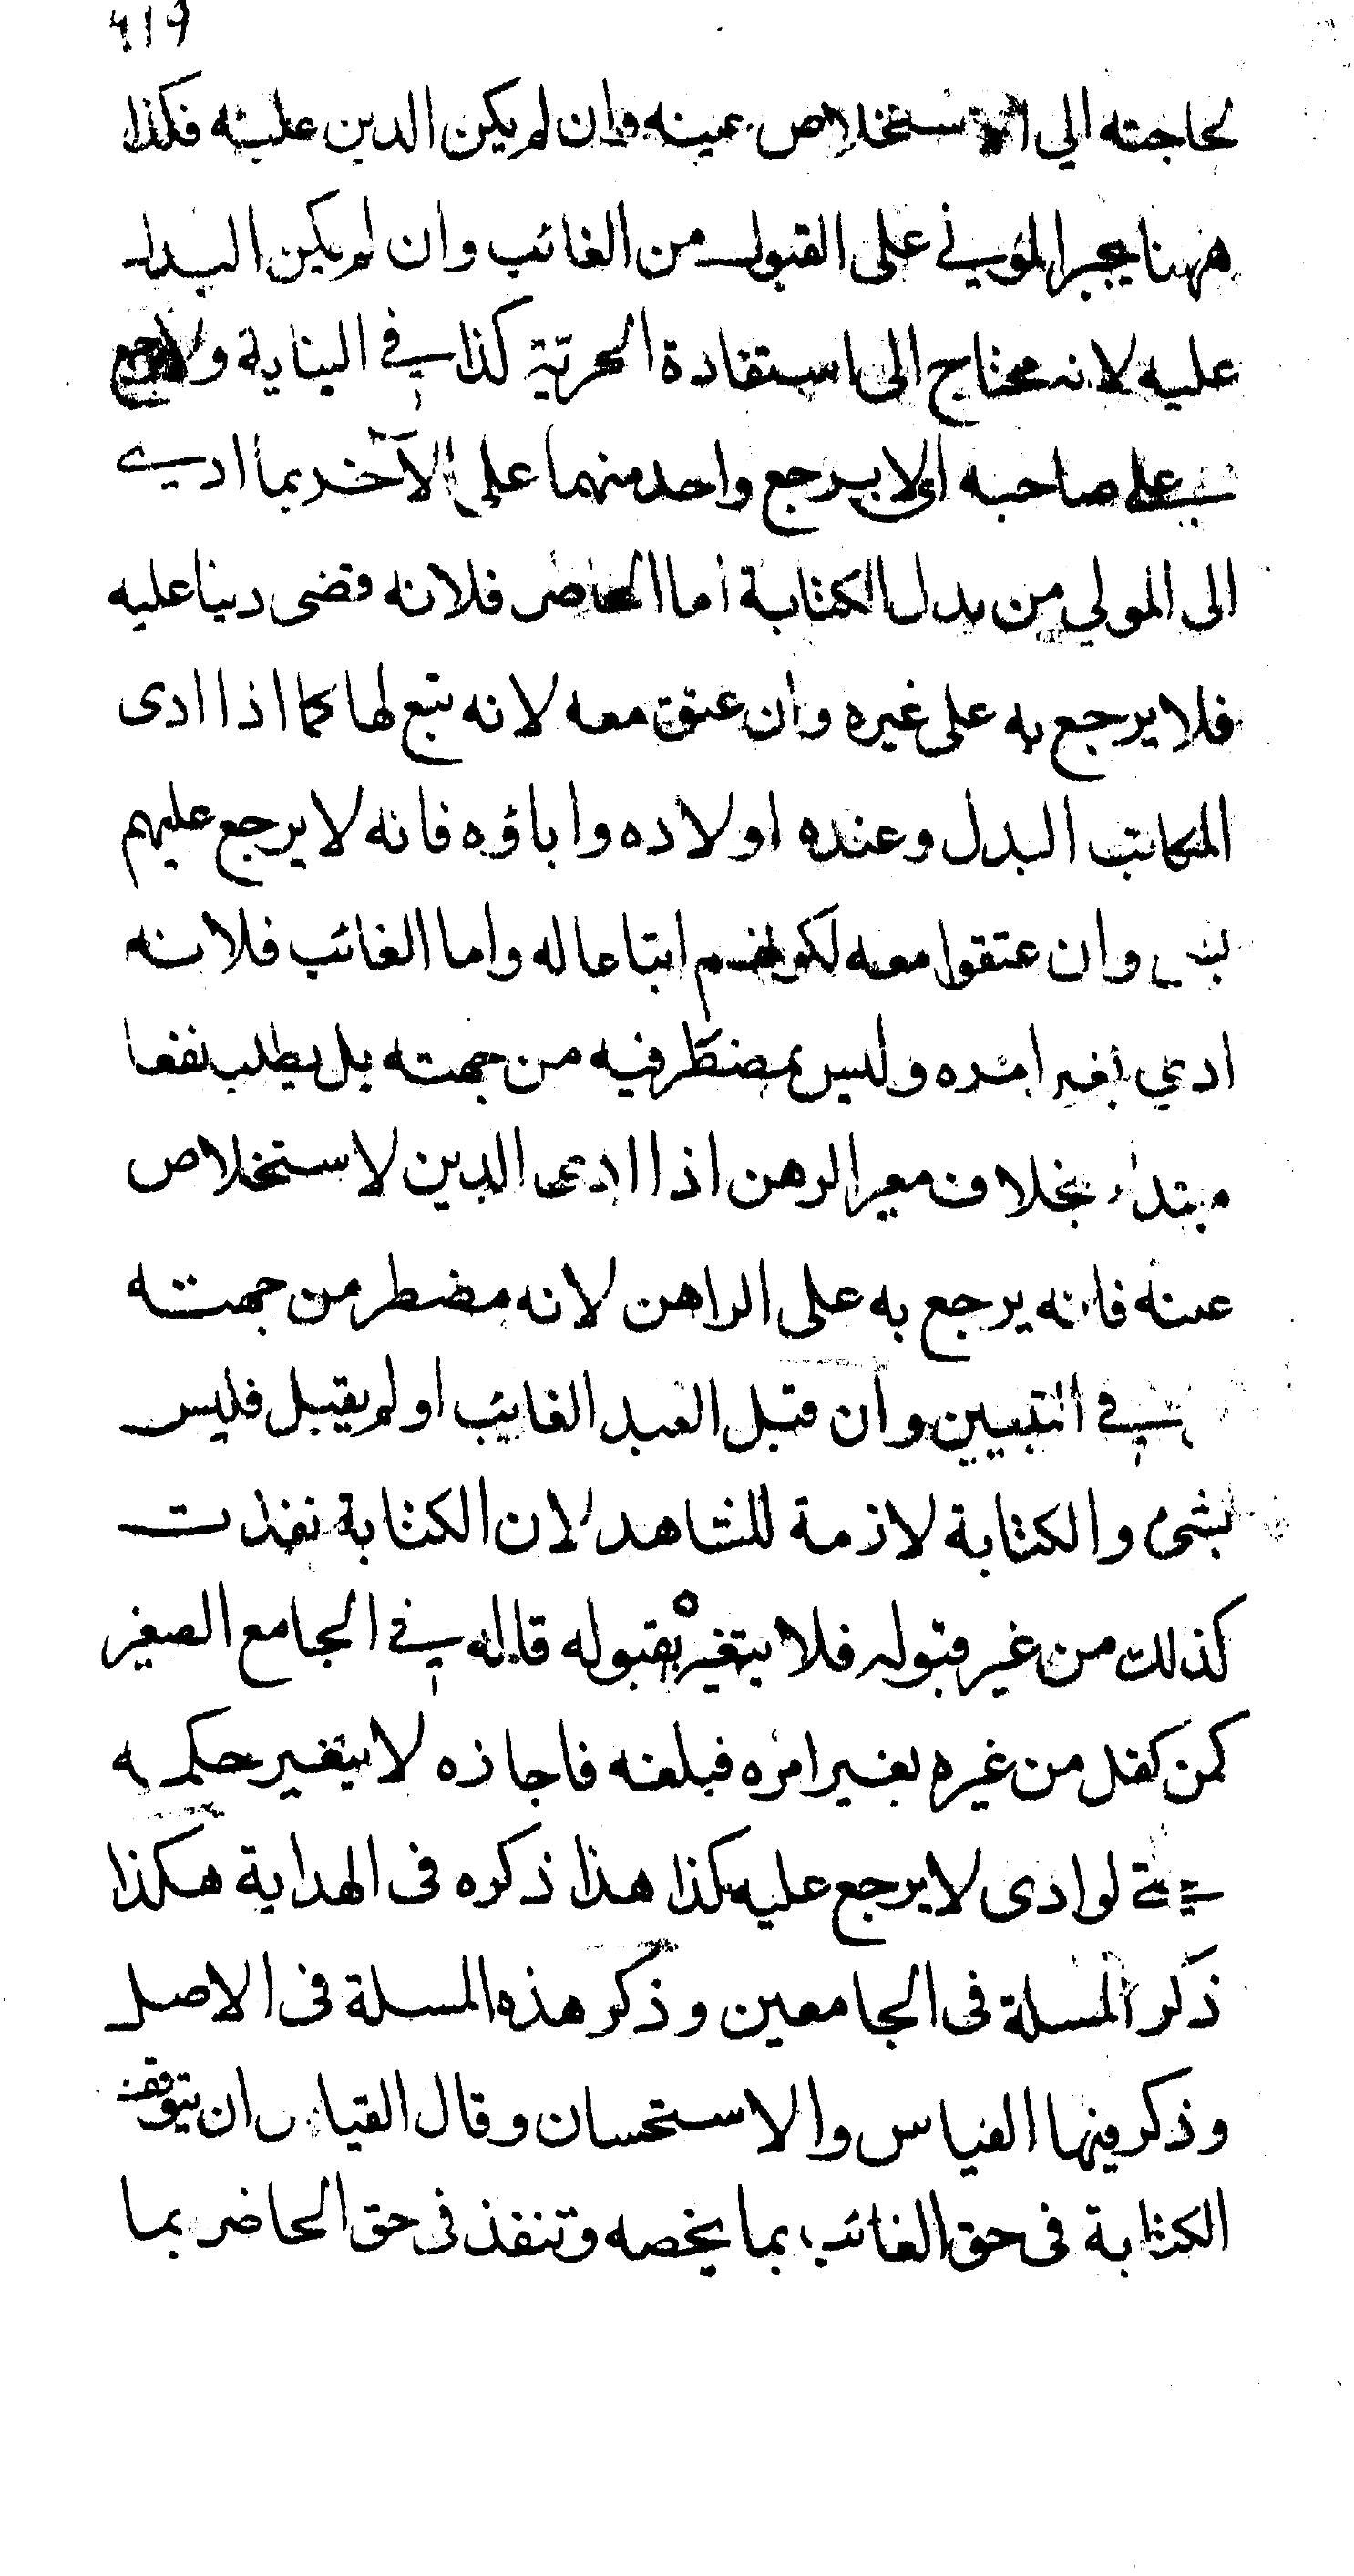 ٤١٩
لحاجته الي الاستخلاص عينه وان لم يكن الدين عليه فكذا
ههنا يجبر المولي على القبول من الغائب وان لم يكن البدل
عليه لانه محتاج الى استفادة الحرية كذا في البناية ولا يرجع
على صاحبه اى لا يرجع واحد منهما على الآخر بما ادى
الى المولي من بدل الكتابة اما الحاضر فلانه قضى دينا عليه
فلا يرجع به على غيره وان عتق معه لانه تبع لها كما اذا ادى
المكاتب البدل وعنده اولاده واباؤه فانه لا يرجع عليهم
بشى وان عتقوا معه لكونهم اتباعا له واما الغائب فلانه
ادي بغير امره وليس بمضطر فيه من جهته بل يطلب نفعا
مبتداء بخلاف معير الرهن اذا ادى الدين لاستخلاص
عينه فانه يرجع به على الراهن لانه مضطر من جهته
في التبيين وان قبل العبد الغايب او لم يقبل فليس
بشئ والكتابة لازمة للشاهد لان الكتابة نفذت
كذلك من غير قبوله فلا يتغير بقبوله قاله في الجامع الصغير
كمن كفل من غيره بغير امره فبلغه فاجازه لا يتغير حكمه
حتى لو ادى لا يرجع عليه كذا هذا ذكره فى الهداية هكذا
ذكر المسلة فى الجامعين وذكر هذه المسلة فى الاصل
وذكر فيها القياس والاستحسان وقال القياس ان يتوقف
الكتابة فى حق الغائب بما يخصه وتنفذ فى حق الحاضر بما